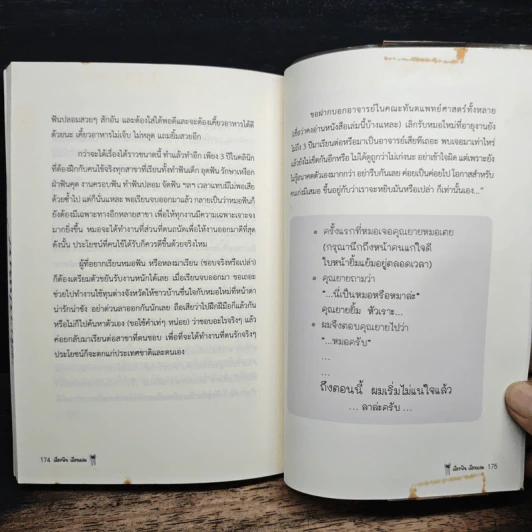 ฟันปลอมสวยๆ สักอัน และต้องใส่ได้พอดีและจะต้องเคี้ยวอาหารได้ดี
ด้วยนะ เคี้ยวอาหารไม่เจ็บ ไม่หลุด และยิ้มสวยอีก
กว่าจะได้เรื่องได้ราวขนาดนี้ ทำแล้วทำอีก เพียง 3 ปีในคลินิก
ที่ต้องฝึกกับคนไข้จริงทุกสาขาที่เรียนทั้งทำฟันเด็ก อุดฟัน รักษาเหงือก
ผ่าฟันคุด งานครอบฟัน ทำฟันปลอม จัดฟัน ฯลฯ เวลาแทบมีไม่พอเสีย
ด้วยซ้ำไป แต่ก็นั่นแหละ พอเรียนจบออกมาแล้ว กลายเป็นว่าหมอฟันก็
ยังต้องมีเฉพาะทางอีกหลายสาขา เพื่อให้ทุกงานมีความเฉพาะเจาะจง
มากยิ่งขึ้น หมอจะได้ทำงานที่ส่วนที่ตนถนัดเพื่อให้งานออกมาดีที่สุด
ดังนั้น ประโยชน์ที่คนไข้ได้รับก็ควรดีขึ้นด้วยจริงไหม
ผู้ที่อยากเรียนหมอฟัน หรือหลงมาเรียน (ชอบจริงหรือเปล่า)
ก็ต้องเตรียมตัวขยันรับงานหนักได้เลย เมื่อเรียนจบออกมา ขอเถอะ
ช่วยไปทำงานใช้ทุนต่างจังหวัดให้ชาวบ้านชื่นใจกับหมอใหม่ที่หน้าตา
น่ารักน่าชัง อย่าด่วนลาออกกันนักเลย ถือเสียว่าไปฝึกฝีมือก็แล้วกัน
หรือไม่ก็ไปค้นหาตัวเอง (ขอใช้คำเท่ๆ หน่อย) ว่าชอบอะไรจริงๆ แล้ว
ค่อยกลับมาเรียนต่อสาขาที่ตนชอบ เพื่อที่จะได้ทำงานที่ตนรักจริงๆ
ประโยชน์ก็จะตกแก่ประเทศชาติและตนเอง
174 เมียฟัน เมียหมอ
ขอฝากบอกอาจารย์ในคณะทันตแพทย์ศาสตร์ทั้งหลาย
(เชื่อว่าคงอ่านหนังสือเล่มนี้บ้างแหละ) เลิกรับหมอใหม่ที่อายุงานยัง
ไม่ถึง 3 ปีมาเรียนต่อหรือมาเป็นอาจารย์เสียทีเถอะ พบเจอมาเท่าไหร่
แล้วยังไม่เข็ดกันอีกหรือ ไม่ได้ดูถูกว่าไม่เก่งนะ อย่าเข้าใจผิด แต่เพราะยัง
ไม่รู้อนาคตตัวเองมากกว่า อย่ารีบกันเลย ค่อยเป็นค่อยไป โอกาสสำหรับ
คนเก่งมีเสมอ ขึ้นอยู่กับว่าเราจะหยิบมันหรือเปล่า ก็เท่านั้นเอง..."
• ครั้งแรกที่หมอเจอคุณยายหมอเตย
(กรุณานึกถึงหน้าคนแก่ใจดี
ใบหน้ายิ้มแย้มอยู่ตลอดเวลา)
• คุณยายถามว่า
"...นี่เป็นหมอหรือหมาล่ะ"
คุณยายยิ้ม หัวเราะ...
• ผมจึงตอบคุณยายไปว่า
"...หมอครับ"
...
...
ถึงตอนนี้ ผมเริ่มไม่แน่ใจแล้ว
... ลาล่ะครับ ...
175